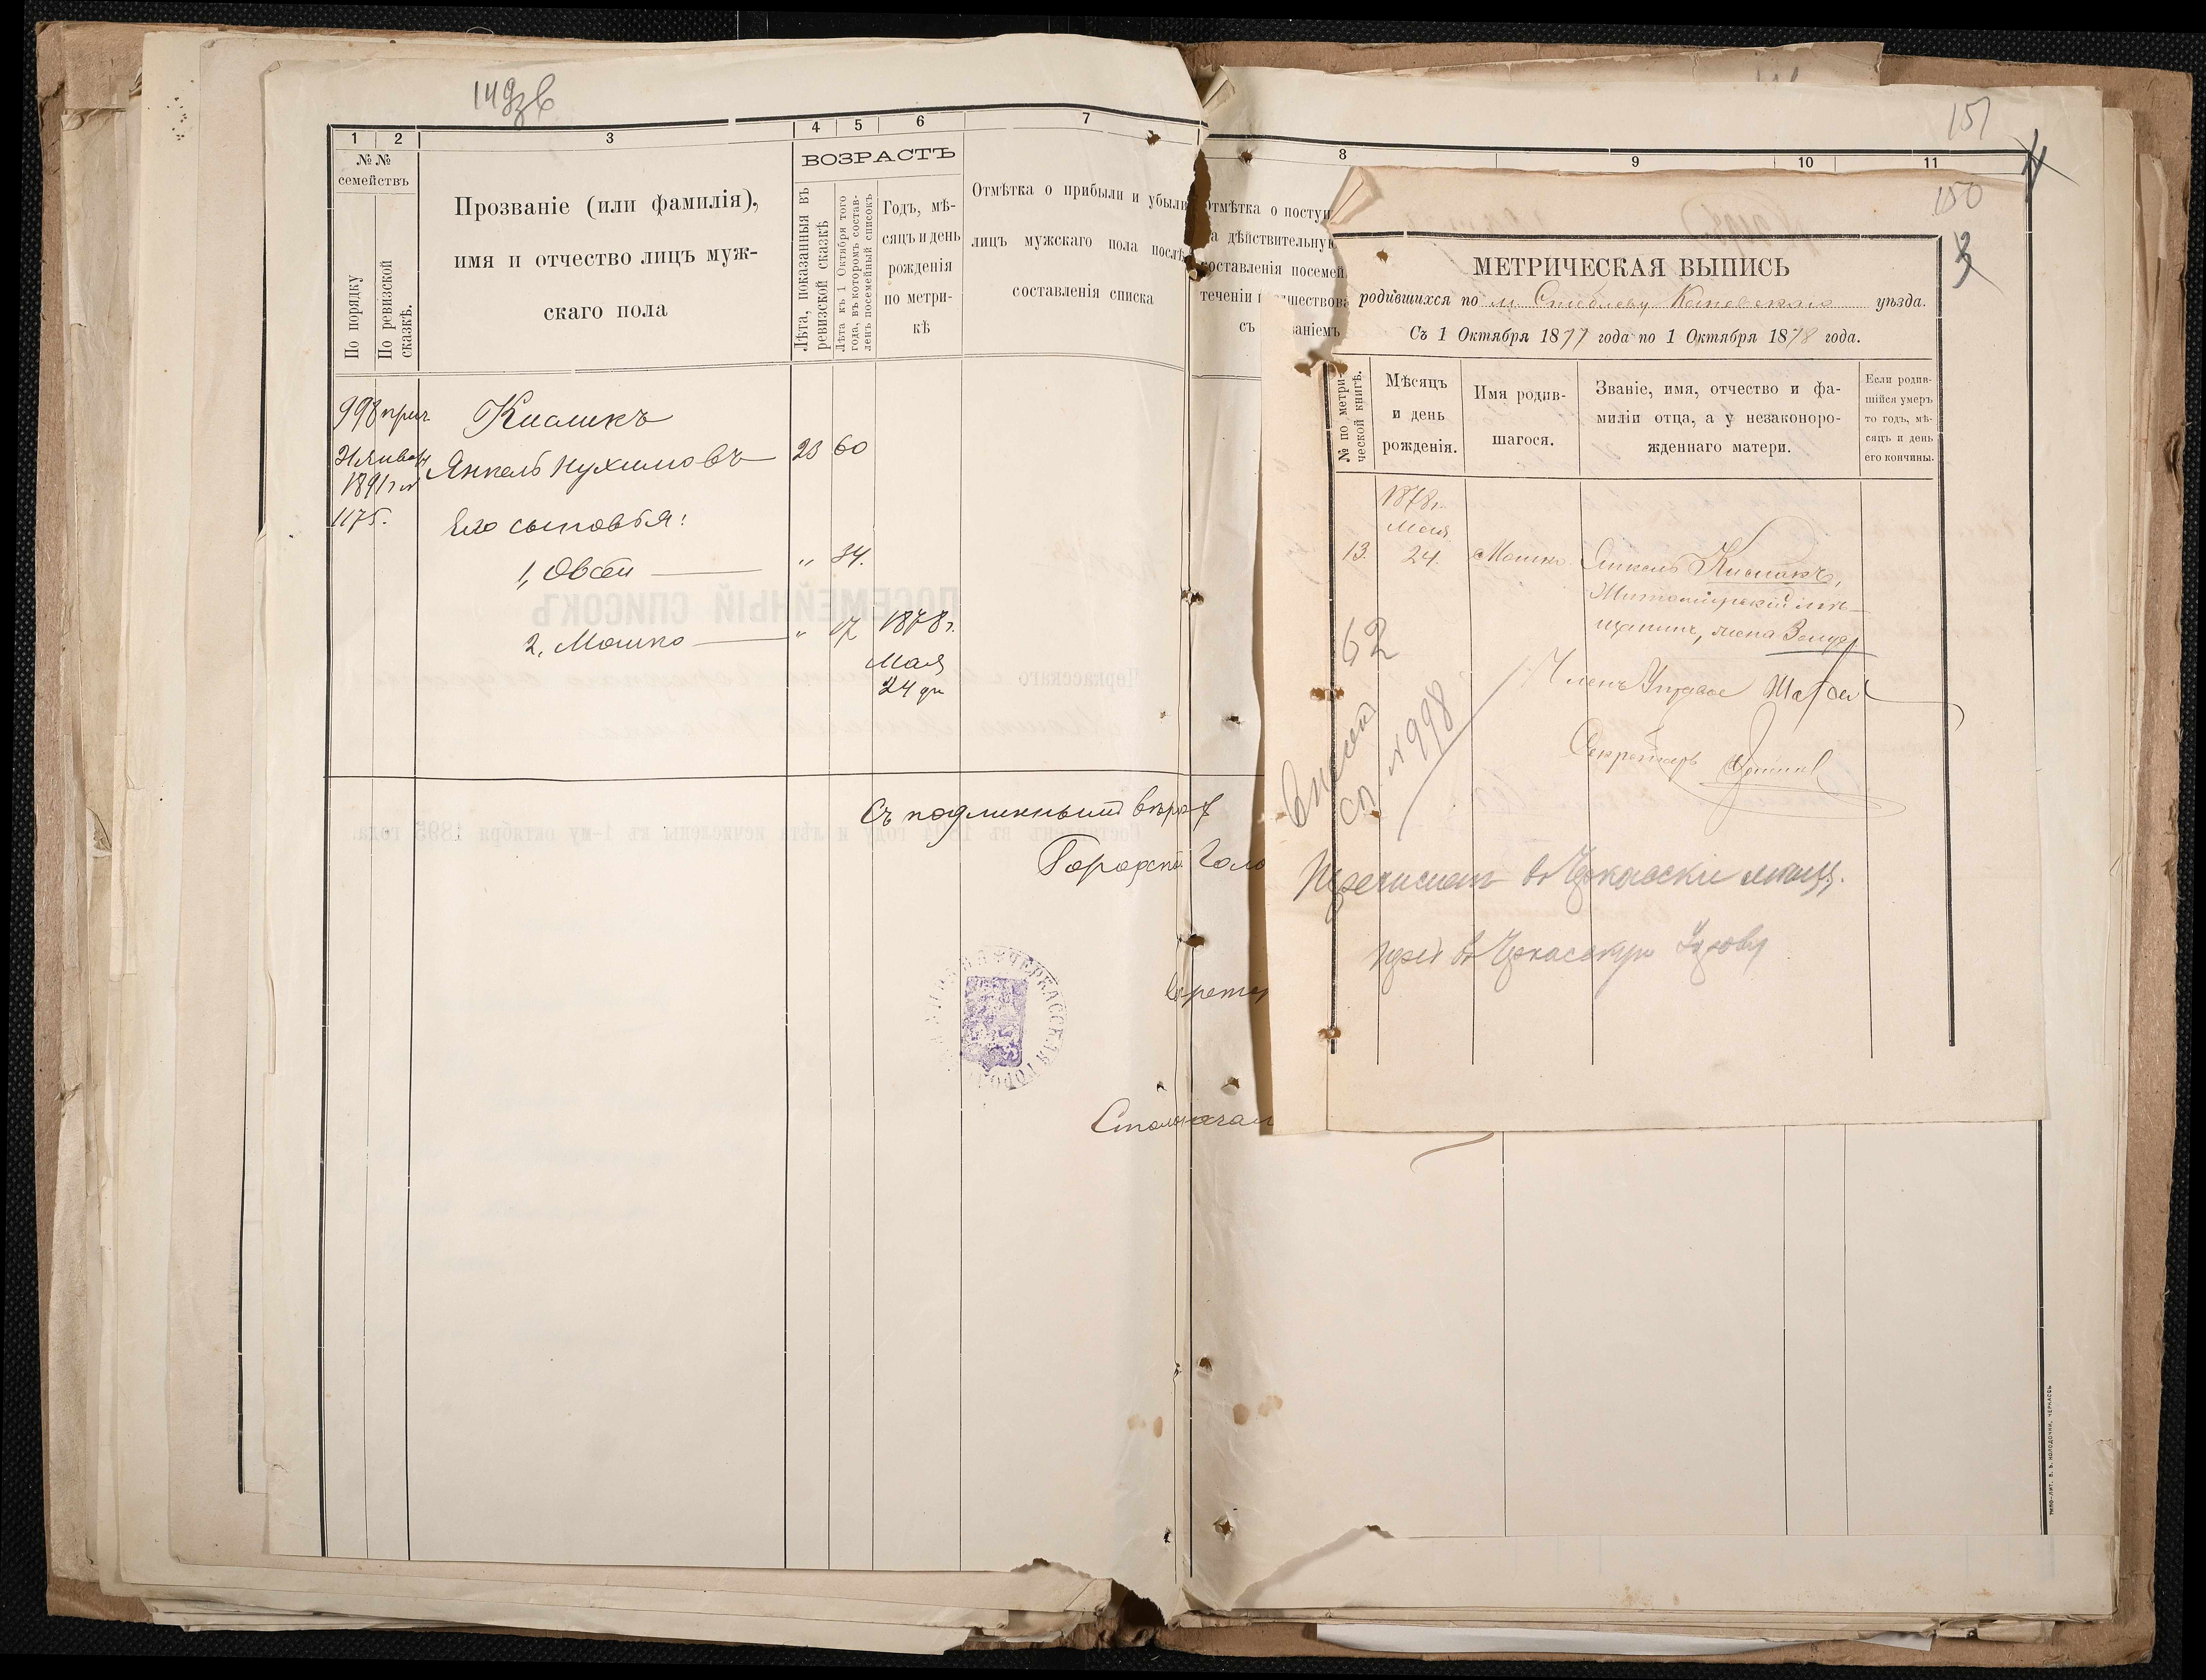 149зв
1 2 3 4 5 6 7
№№ семействъ
По порядку
По ревизской сказкѣ.
Прозваніе (или фамилія),
имя и отчество лицъ муж-
скаго пола
ВОЗРАСТЪ
Лѣта, показанныя въ
ревизской сказкѣ
Лѣта къ 1 Октября того
года, въ которомъ состав-
ленъ посемейный списокъ
Годъ, мѣ-
сяцъ и день
рожденія
по метри-
кѣ
Отмѣтка о прибыли и убыли
лицъ мужскаго пола послѣ
составленія списка
998 прич.
Января
1891 г.
1175.
Кисликъ
Янкель Нухимовъ 23 60
Его сыновья:
1, Овсей " 34.
2, Мошко " 17 1878 г.
Мая
24 дн
Съ подлиннымъ вѣрно
Городской Голо
Секретарь
Столоначал
ЧЕРКАССКАЯ ГОРОД
151
8 9 10 11
Отмѣтка о поступ
а дѣйствительную
составленія посемей
теченіи
шествова
съ
ваніемъ
150
3
МЕТРИЧЕСКАЯ ВЫПИСЬ
родившихся по м. Стеблеву Каневскаго уѣзда.
Съ 1 Октября 1877 года по 1 Октября 1878 года.
№ по метри-
ческой книгѣ.
Мѣсяцъ
и день
рожденія.
Имя родив-
шагося.
Званіе, имя, отчество и фа-
милія отца, а у незаконоро-
жденнаго матери.
Если родив-
шійся умеръ
то годъ, мѣ-
сяцъ и день
его кончины.
1878 г.
Мая
13. 24. Мошко Янкель Кисликъ,
Житомірскій мѣ-
щанинъ, жена
62
Членъ Управы
Секретарь
сп. № 998
Перечислен в Черкаские мещ.
в Черкасскую Управу
ТИПО-ЛИТ. В. В. КОЛОДОЧКИ, ЧЕРКАССЫ
ПОСЕМЕЙНЫЙ СПИСОКЪ
Черкасскаго
Составленъ въ 1894 году и лѣта исчислены къ 1-му октября 1895 года.